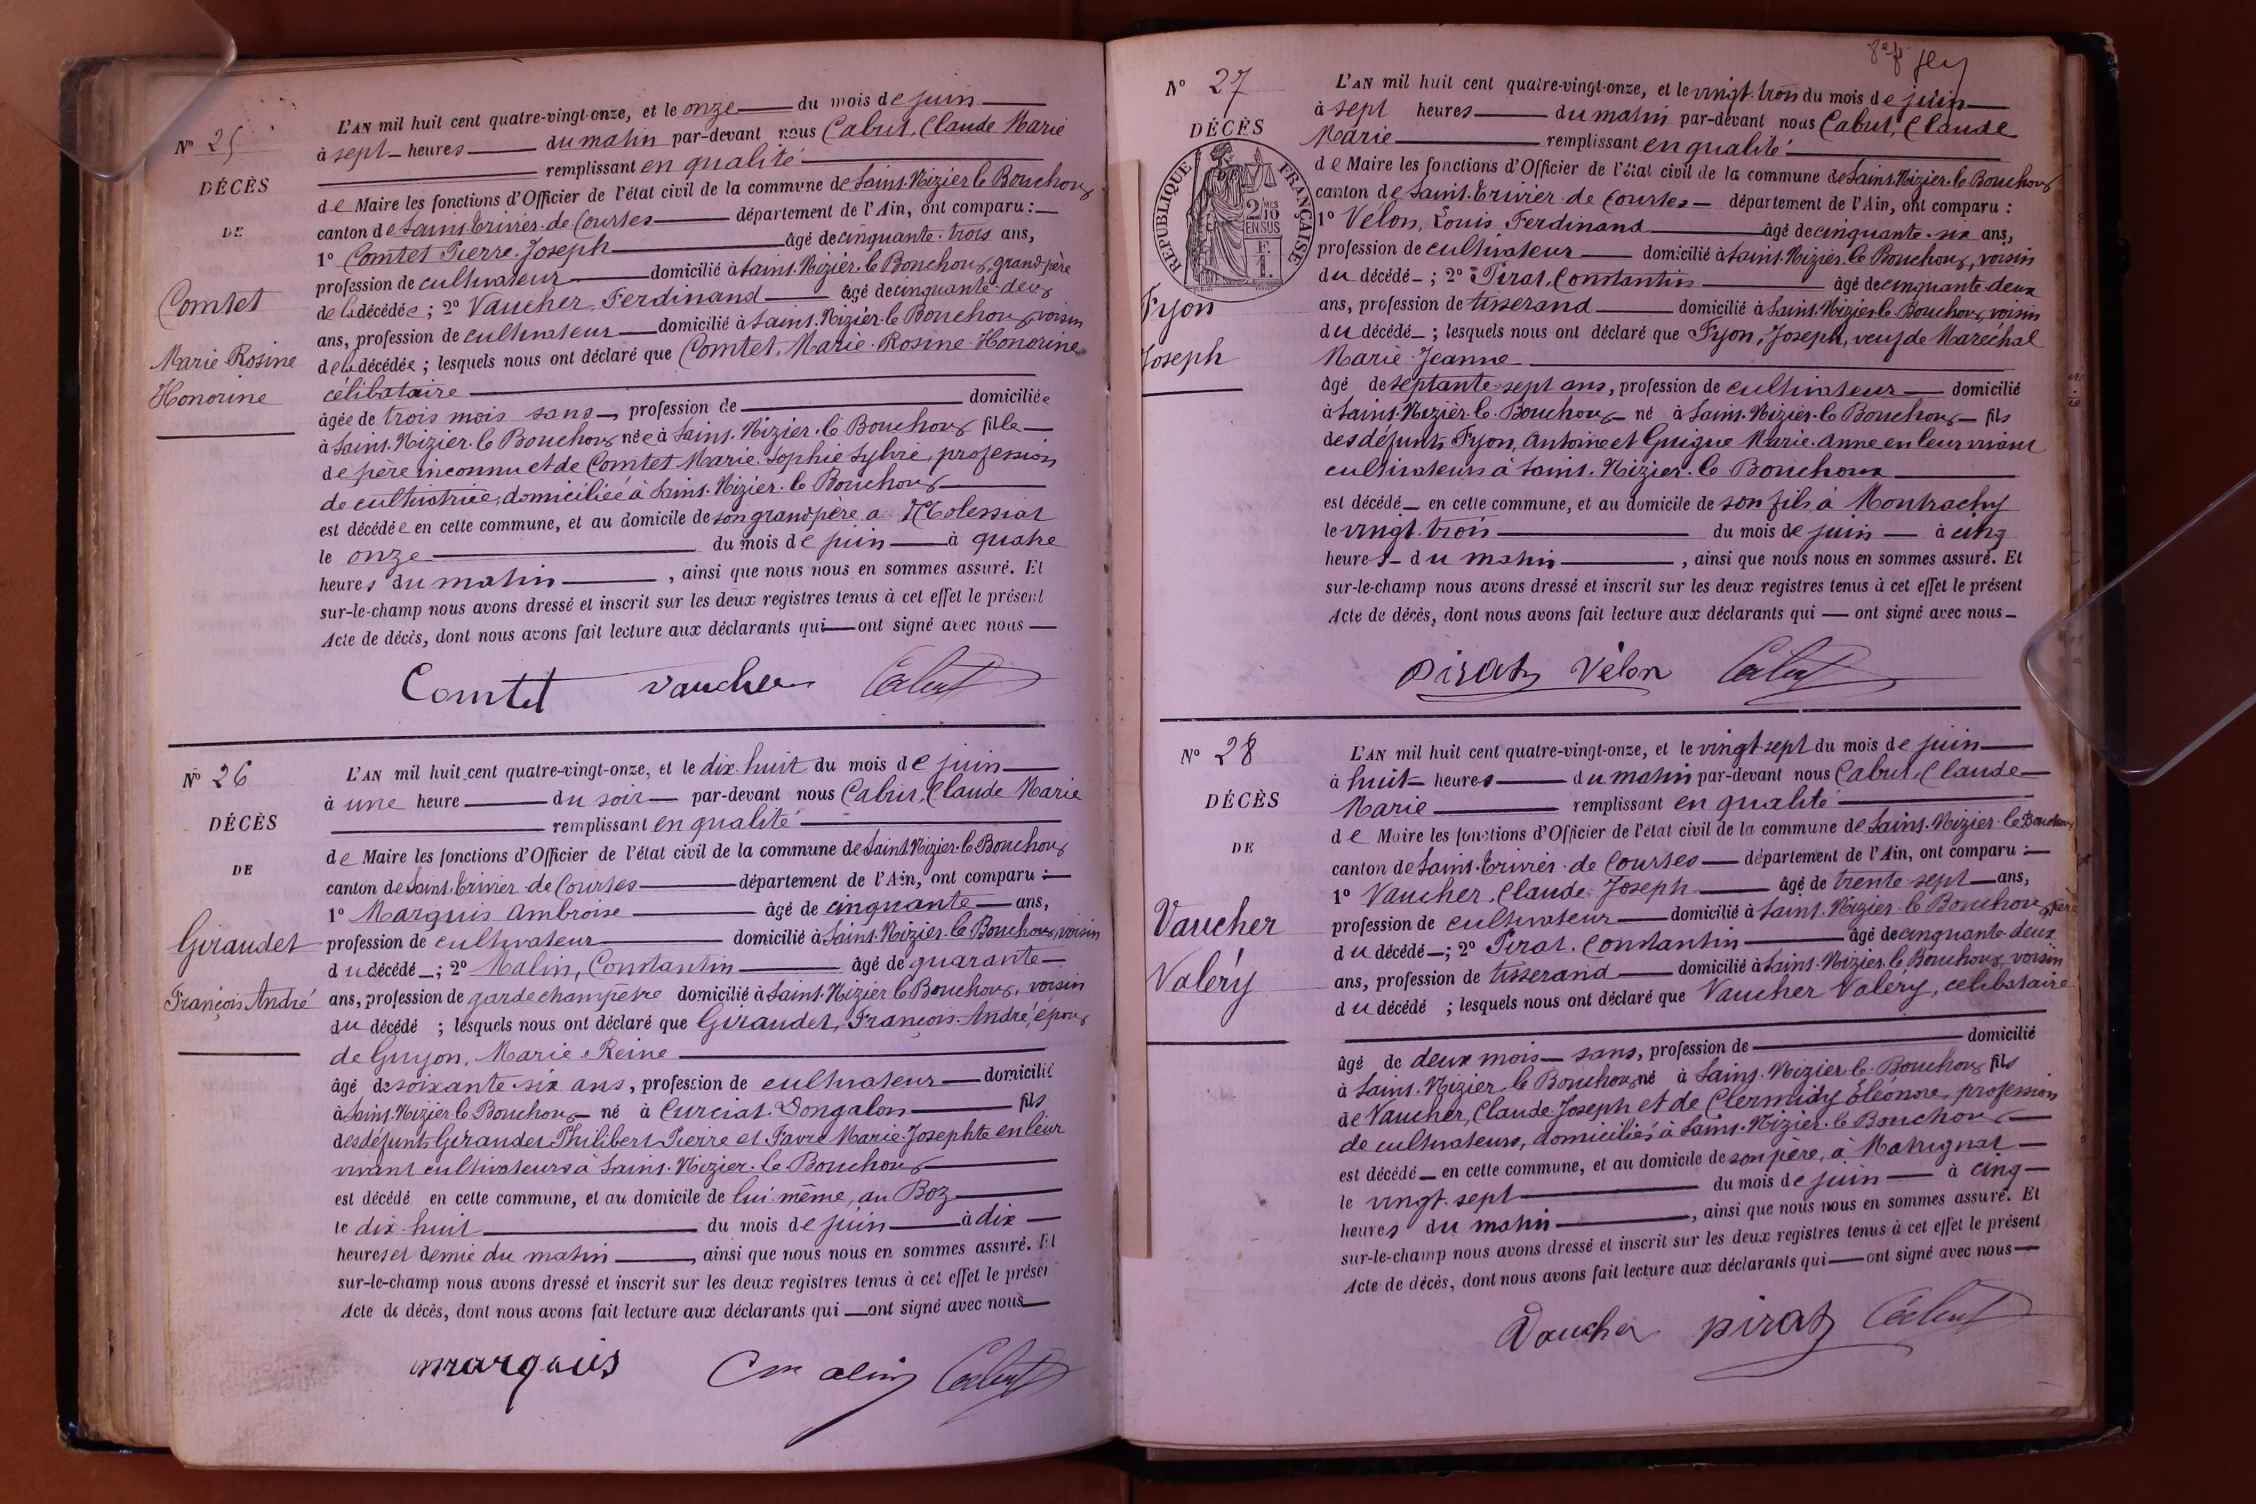 N° 25
DÉCÈS
DE
Comtet
Marie Rosine
Honorine
L'AN mil huit cent quatre-vingt-onze, et le onze du mois de juin
à sept heures du matin par-devant nous Cabut, Claude Marie
remplissant en qualité
de Maire les fonctions d'Officier de l'état civil de la commune de Saint-Nizier-le-Bouchoux
canton de Saint-Trivier-de-Courtes département de l'Ain, ont comparu :
1° Comtet Pierre-Joseph âgé de cinquante-trois ans,
profession de cultivateur domicilié à Saint-Nizier-le-Bouchoux, grand-père
de la décédée ; 2° Vaucher Ferdinand âgé de cinquante-deux
ans, profession de cultivateur domicilié à Saint-Nizier-le-Bouchoux, voisin
de la décédée ; lesquels nous ont déclaré que Comtet, Marie-Rosine-Honorine
célibataire
âgée de trois mois sans, profession de domiciliée
à Saint-Nizier-le-Bouchoux née à Saint-Nizier-le-Bouchoux fille
de père inconnu et de Comtet Marie-Sophie Sylvie, profession
de cultivatrice, domiciliée à Saint-Nizier-le-Bouchoux
est décédée en cette commune, et au domicile de son grand père a Molessiat
le onze du mois de juin à quatre
heures du matin, ainsi que nous nous en sommes assuré. Et
sur-le-champ nous avons dressé et inscrit sur les deux registres tenus à cet effet le présent
Acte de décès, dont nous avons fait lecture aux déclarants qui ont signé avec nous
Comtet Vaucher Cabut
N° 26
DÉCÈS
DE
Giraudet
François André
L'AN mil huit cent quatre-vingt-onze, et le dix-huit du mois de juin
à une heure du soir par-devant nous Cabut, Claude Marie
remplissant en qualité
de Maire les fonctions d'Officier de l'état civil de la commune de Saint-Nizier-le-Bouchoux
canton de Saint-Trivier-de-Courtes département de l'Ain, ont comparu :
1° Marquis Ambroise âgé de cinquante ans,
profession de cultivateur domicilié à Saint-Nizier-le-Bouchoux, voisin
du décédé ; 2° Malin, Constantin âgé de quarante
ans, profession de garde champêtre domicilié à Saint-Nizier-le-Bouchoux, voisin
du décédé ; lesquels nous ont déclaré que Giraudet, François-André, époux
de Guyon, Marie-Reine
âgé de soixante-six ans, profession de cultivateur domicilié
à Saint-Nizier-le-Bouchoux né à Curciat-Dongalon fils
des défunts Giraudet Philibert-Pierre et Favre Marie-Josephte en leur
vivant cultivateurs à Saint-Nizier-le-Bouchoux
est décédé en cette commune, et au domicile de lui-même, au Boz
le dix-huit du mois de juin à dix
heures et demie du matin, ainsi que nous nous en sommes assuré. Et
sur-le-champ nous avons dressé et inscrit sur les deux registres tenus à cet effet le présent
Acte de décès, dont nous avons fait lecture aux déclarants qui ont signé avec nous
marquis C malin Cabut
N° 27
DÉCÈS
RÉPUBLIQUE FRANÇAISE
2/10 MES EN SUS
F. 1.
Fyon
Joseph
L'AN mil huit cent quatre-vingt-onze, et le vingt-trois du mois de juin
à sept heures du matin par-devant nous Cabut, Claude
Marie remplissant en qualité
de Maire les fonctions d'Officier de l'état civil de la commune de Saint-Nizier-le-Bouchoux
canton de Saint-Trivier-de-Courtes département de l'Ain, ont comparu :
1° Velon, Louis Ferdinand âgé de cinquante-six ans,
profession de cultivateur domicilié à Saint-Nizier-le-Bouchoux, voisin
du décédé ; 2° Pirat, Constantin âgé de cinquante-deux
ans, profession de tisserand domicilié à Saint-Nizier-le-Bouchoux, voisin
du décédé ; lesquels nous ont déclaré que Fyon, Joseph, veuf de Maréchal
Marie-Jeanne
âgé de septante-sept ans, profession de cultivateur domicilié
à Saint-Nizier-le-Bouchoux né à Saint-Nizier-le-Bouchoux fils
des défunts Fyon, Antoine et Guigue Marie-Anne en leur vivant
cultivateurs à Saint-Nizier-le-Bouchoux
est décédé en cette commune, et au domicile de son fils à Montrachy
le vingt-trois du mois de juin à cinq
heures du matin, ainsi que nous nous en sommes assuré. Et
sur-le-champ nous avons dressé et inscrit sur les deux registres tenus à cet effet le présent
Acte de décès, dont nous avons fait lecture aux déclarants qui ont signé avec nous
Pirat Vélon Cabut
N° 28
DÉCÈS
DE
Vaucher
Valéry
L'AN mil huit cent quatre-vingt-onze, et le vingt-sept du mois de juin
à huit heures du matin par-devant nous Cabut, Claude
Marie remplissant en qualité
de Maire les fonctions d'Officier de l'état civil de la commune de Saint-Nizier-le-Bouchoux
canton de Saint-Trivier-de-Courtes département de l'Ain, ont comparu :
1° Vaucher, Claude-Joseph âgé de trente-sept ans,
profession de cultivateur domicilié à Saint-Nizier-le-Bouchoux, père
du décédé ; 2° Pirat, Constantin âgé de cinquante-deux
ans, profession de tisserand domicilié à Saint-Nizier-le-Bouchoux, voisin
du décédé ; lesquels nous ont déclaré que Vaucher Valéry, célibataire
âgé de deux mois sans, profession de domicilié
à Saint-Nizier-le-Bouchoux né à Saint-Nizier-le-Bouchoux fils
de Vaucher, Claude-Joseph et de Clermidy Éléonore, profession
de cultivateurs, domiciliés à Saint-Nizier-le-Bouchoux
est décédé en cette commune, et au domicile de son père, à Matrignat
le vingt-sept du mois de juin à cinq
heures du matin, ainsi que nous nous en sommes assuré. Et
sur-le-champ nous avons dressé et inscrit sur les deux registres tenus à cet effet le présent
Acte de décès, dont nous avons fait lecture aux déclarants qui ont signé avec nous
Vaucher pirat Cabut